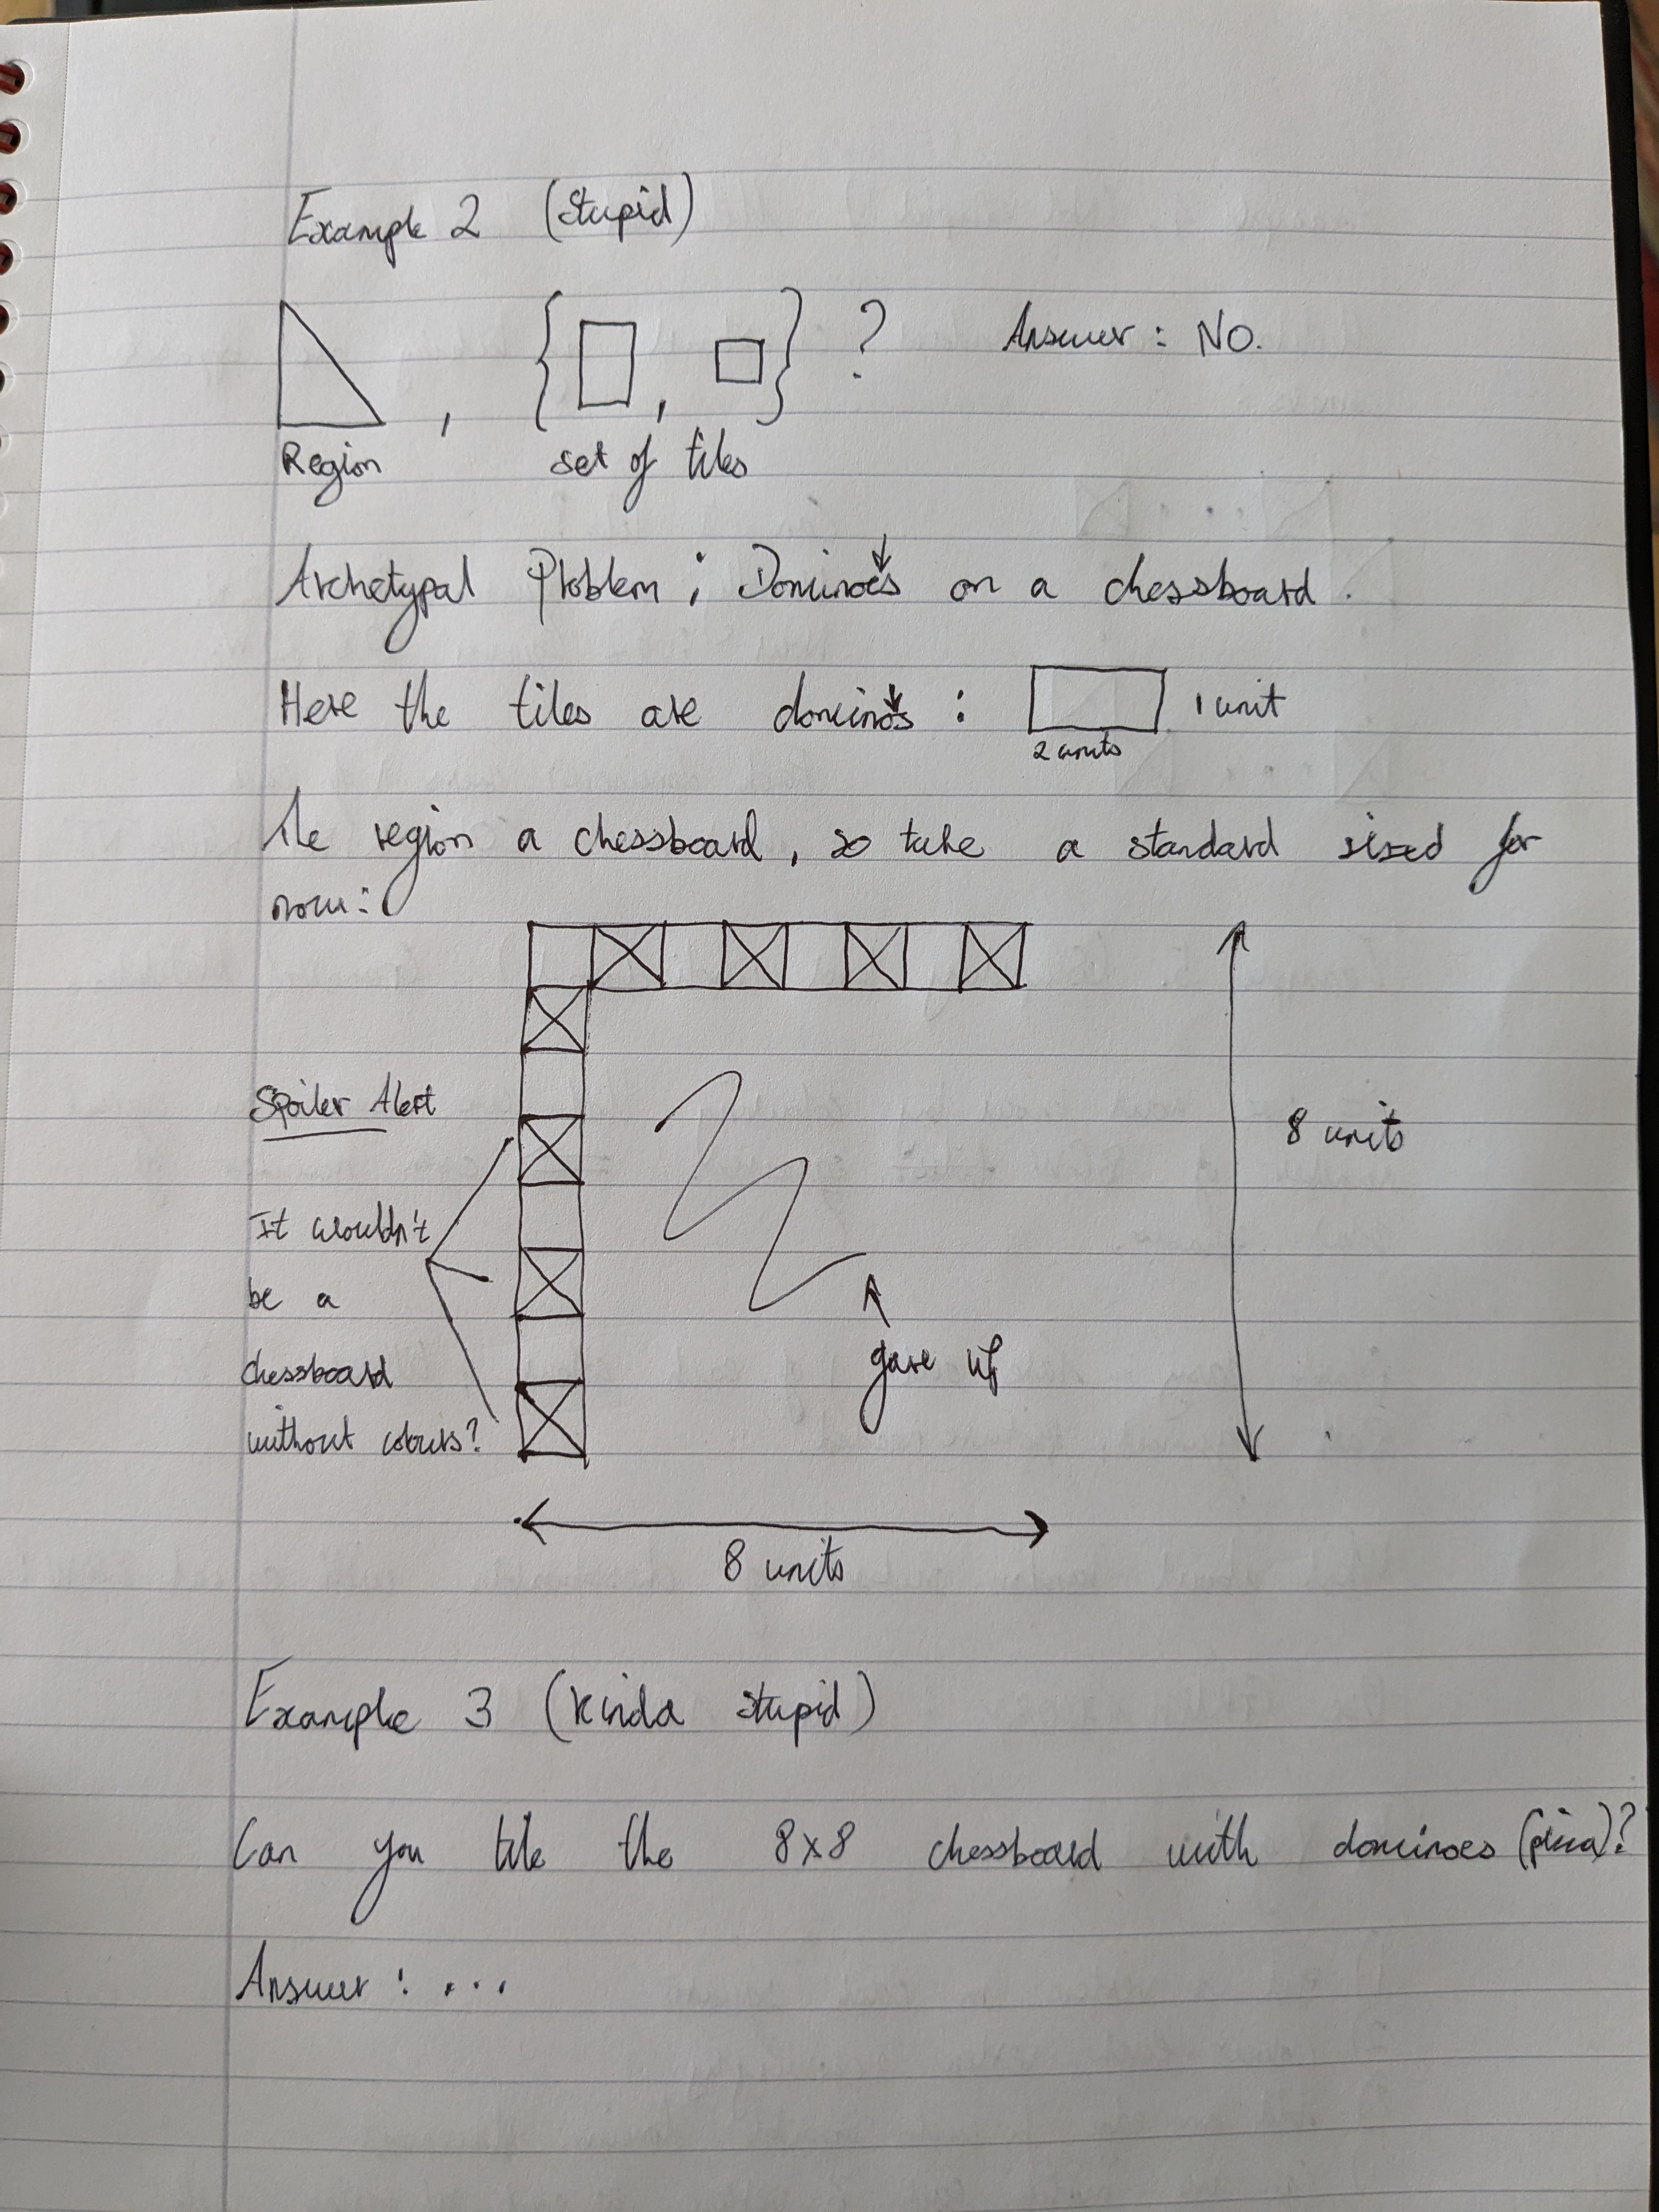 Example 2 (Stupid)
, { , } ? Answer : NO.
Region set of tiles
Archetypal Problem ; Dominoes on a chessboard .
Here the tiles are dominos : 1 unit
2 units
The region a chessboard, so take a standard sized for
now :
Spoiler Alert
8 units
It wouldn't
be a
chessboard
without colours?
gave up
8 units
Example 3 (kinda stupid)
Can you tile the 8x8 chessboard with dominoes ?
Answer : ...